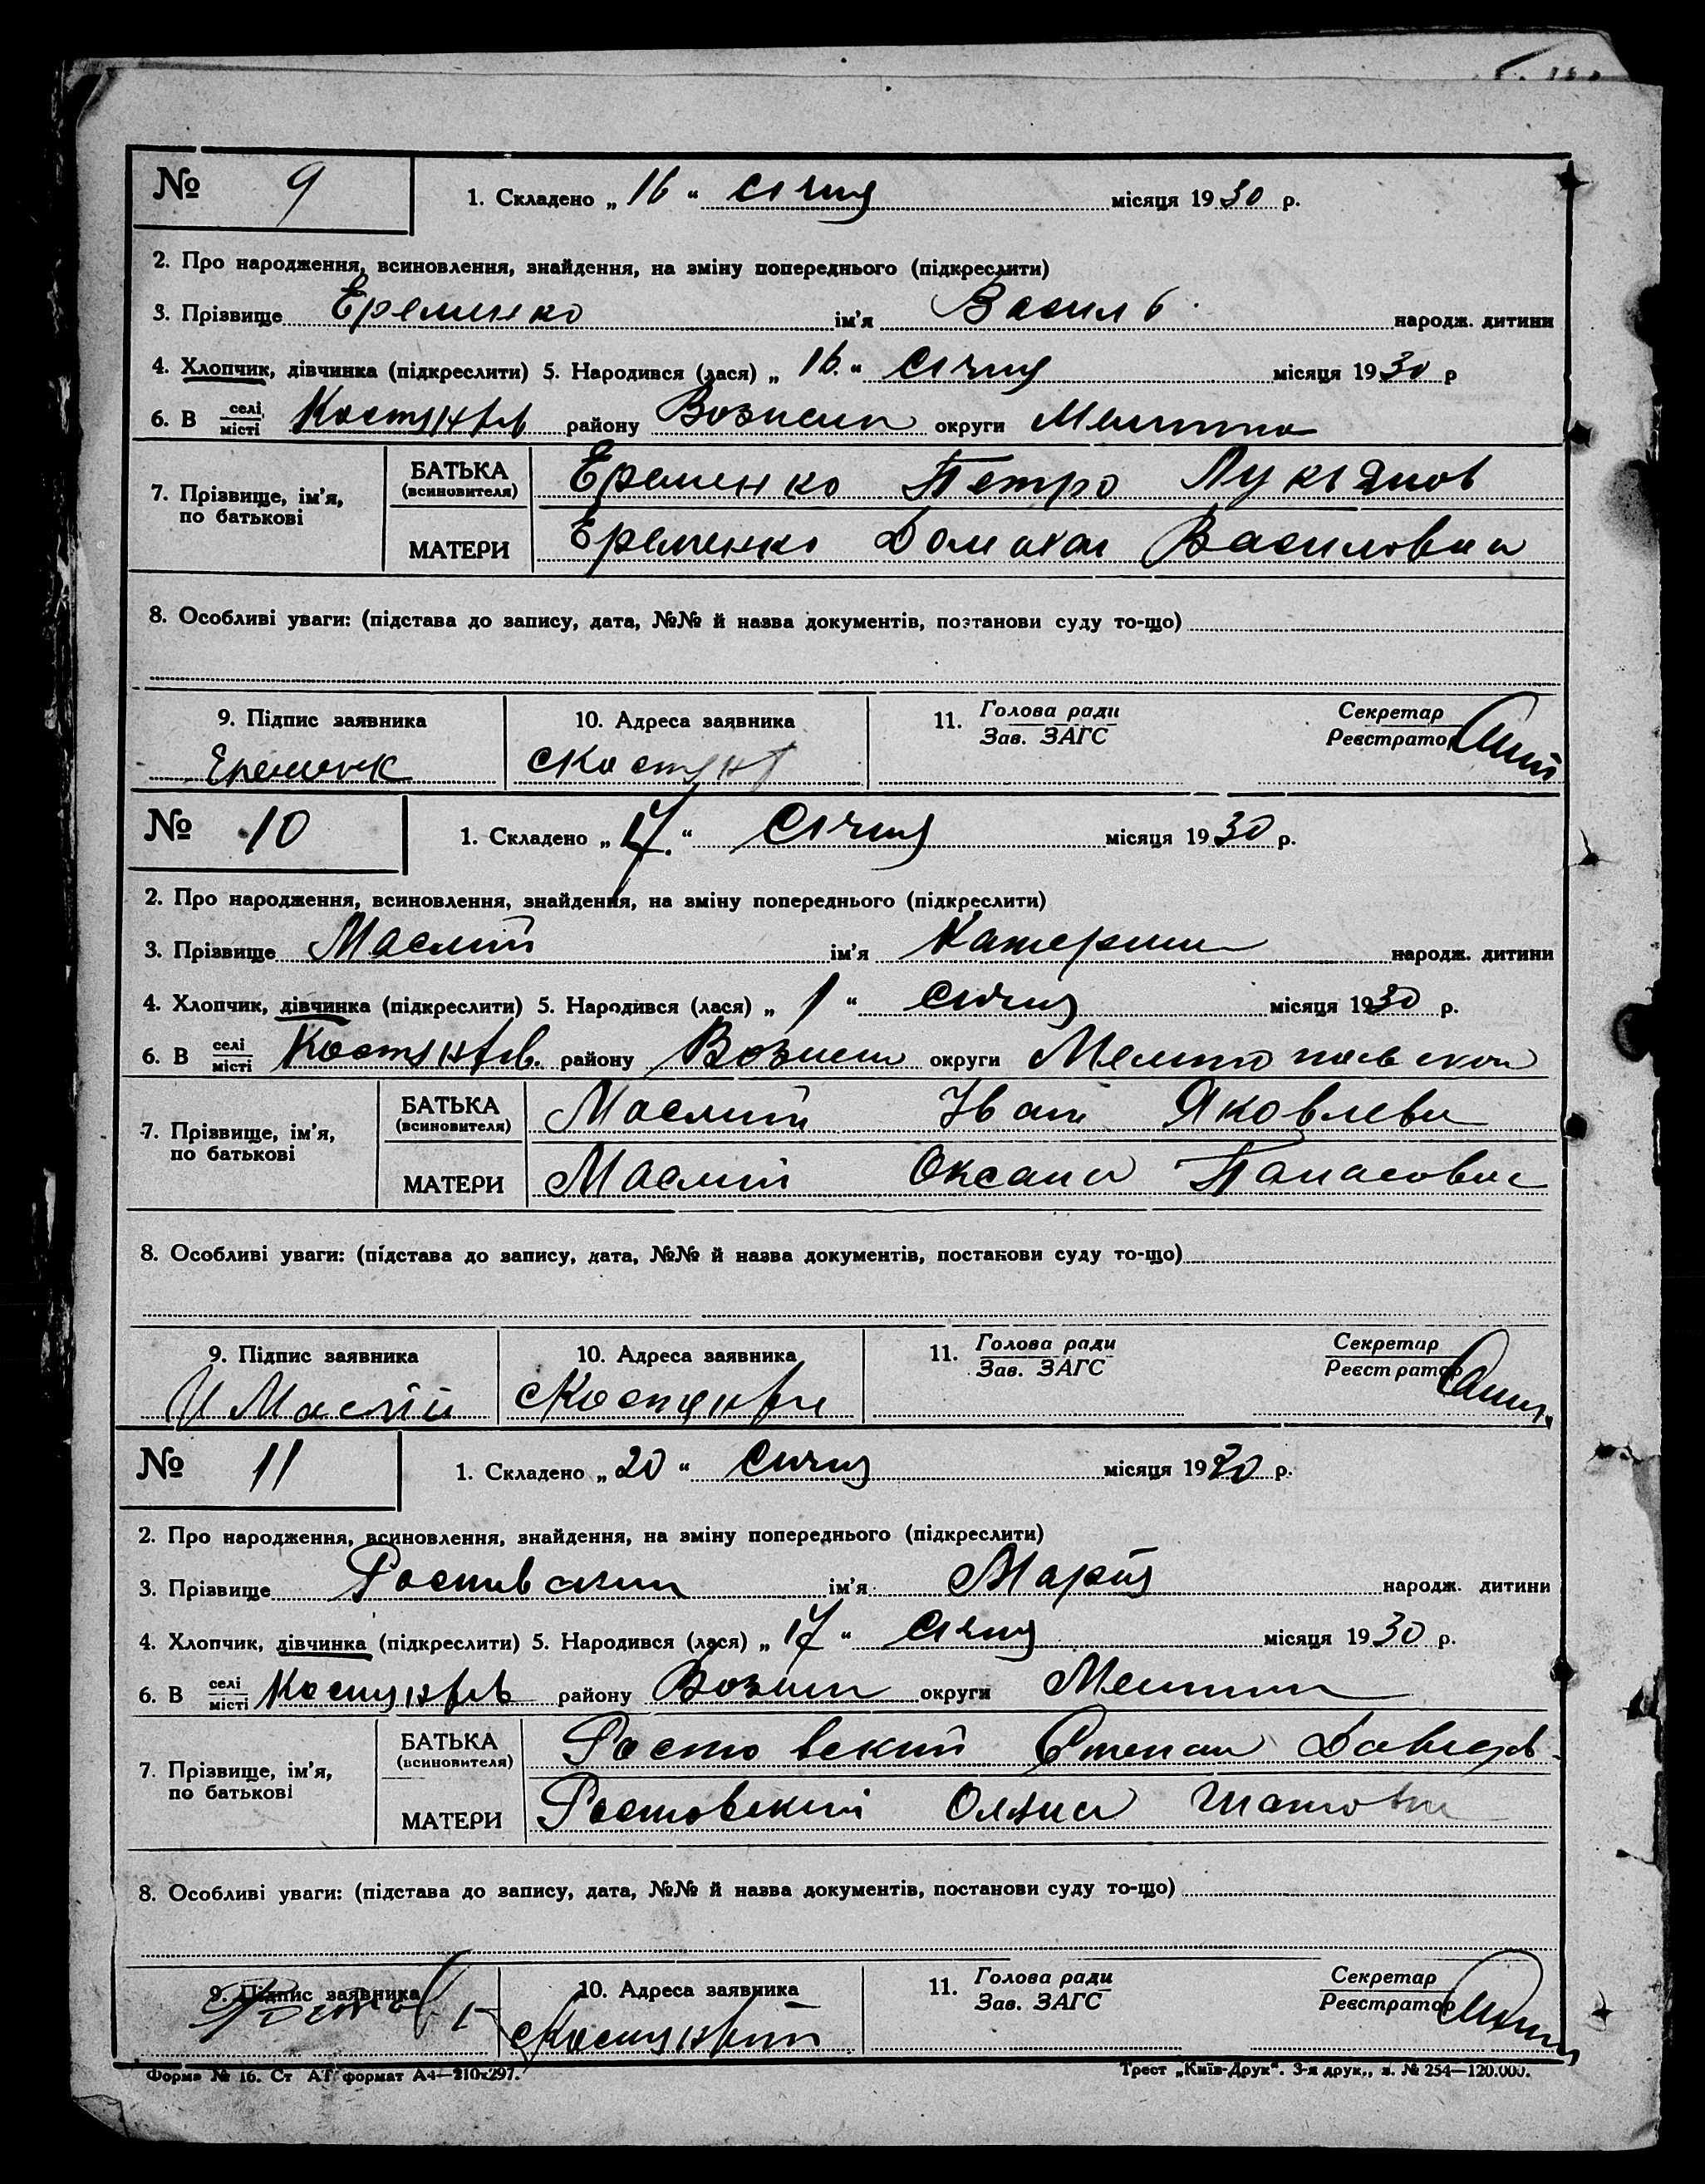 № 9 1. Складено „ 16 “ січня місяця 1930 р.
2. Про народження, всиновлення, знайдення, на зміну попереднього (підкреслити)
3. Прізвище Еременко ім’я Василь народж. дитини
4. Хлопчик, дівчинка (підкреслити) 5. Народився (лася) „ 16. “ січня місяця 1930 р
6. В селі місті району округи
7. Прізвище, ім’я, по батькові
БАТЬКА (всиновителя) Еременко Петро Лукіянов
МАТЕРИ Еременко Василовна
8. Особливі уваги: (підстава до запису, дата, №№ й назва документів, постанови суду то-що)
9. Підпис заявника 10. Адреса заявника 11. Голова ради Зав. ЗАГС Секретар Реєстратор
№ 10 1. Складено „ 17. “ січня місяця 1930 р.
2. Про народження, всиновлення, знайдення, на зміну попереднього (підкреслити)
3. Прізвище Маслий ім’я Катерина народж. дитини
4. Хлопчик, дівчинка (підкреслити) 5. Народився (лася) „ 1 “ січня місяця 1930 р.
6. В селі місті району округи
7. Прізвище, ім’я, по батькові
БАТЬКА (всиновителя) Маслий Іван Яковлеви
МАТЕРИ Маслий Оксана Панасовна
8. Особливі уваги: (підстава до запису, дата, №№ й назва документів, постанови суду то-що)
9. Підпис заявника 10. Адреса заявника 11. Голова ради Зав. ЗАГС Секретар Реєстратор
И Маслій
№ 11 1. Складено „ 20 “ січня місяця 1930 р.
2. Про народження, всиновлення, знайдення, на зміну попереднього (підкреслити)
3. Прізвище ім’я Марія народж. дитини
4. Хлопчик, дівчинка (підкреслити) 5. Народився (лася) „ 17 “ січня місяця 1930 р.
6. В селі місті району округи
7. Прізвище, ім’я, по батькові
БАТЬКА (всиновителя) Ростовский Степан Давидов
МАТЕРИ Ростовский
8. Особливі уваги: (підстава до запису, дата, №№ й назва документів, постанови суду то-що)
9. Підпис заявника 10. Адреса заявника 11. Голова ради Зав. ЗАГС Секретар Реєстратор
Форма № 16. Ст АТ формат А4—210х297. Трест „Київ-Друк“. 3-я друк., з. № 254—120.000.